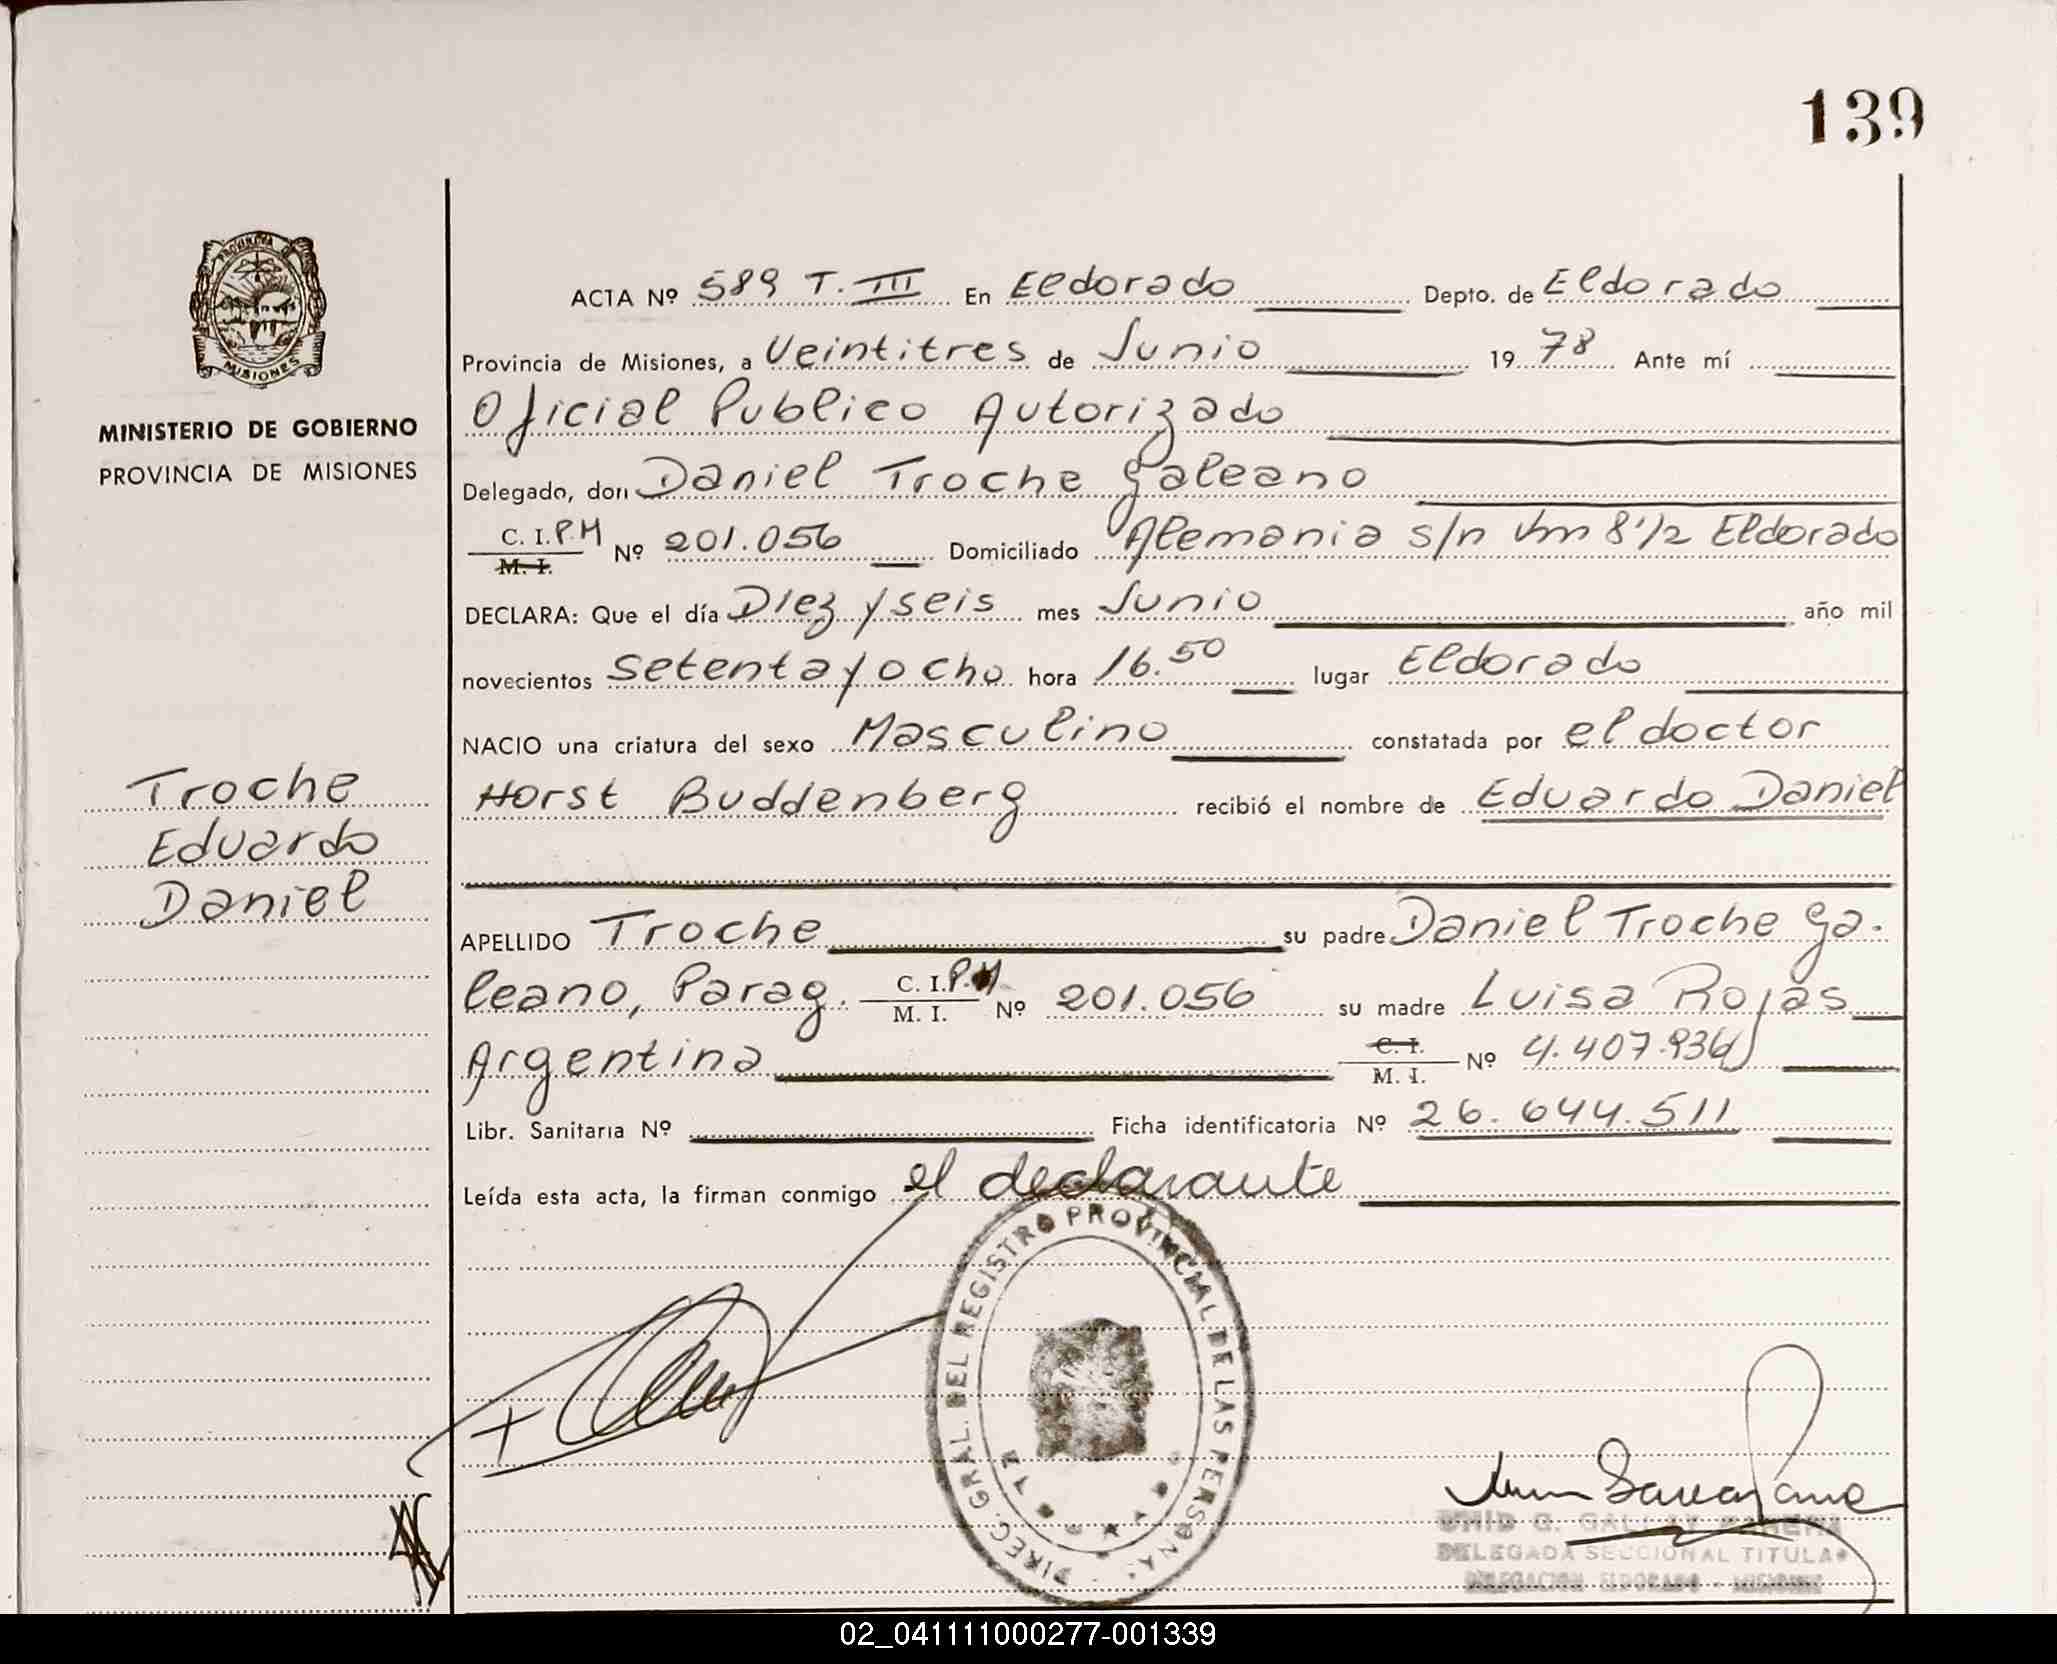 139
PROVINCIA DE
MISIONES
MINISTERIO DE GOBIERNO
PROVINCIA DE MISIONES
Troche
Eduardo
Daniel
ACTA Nº 589 T. III En Eldorado Depto. de Eldorado
Provincia de Misiones, a Veintitres de Junio 1978 Ante mí
Oficial Publico Autorizado
Delegado, don Daniel Troche Galeano
C. I. P.M
M. I.
Nº 201.056 Domiciliado Alemania s/n Km 8 1/2 Eldorado
DECLARA: Que el día Diez y seis mes Junio año mil
novecientos setenta y ocho hora 16.50 lugar Eldorado
NACIO una criatura del sexo Masculino constatada por el doctor
Horst Buddenberg recibió el nombre de Eduardo Daniel
APELLIDO Troche su padre Daniel Troche Ga-
leano, Parag. C. I. P.M
M. I.
Nº 201.056 su madre Luisa Rojas
Argentina C. I.
M. I.
Nº 4.407.936
Libr. Sanitaria Nº Ficha identificatoria Nº 26.644.511
Leída esta acta, la firman conmigo el declarante
DIREC. GRAL. DEL REGISTRO PROVINCIAL DE LAS PERSONA
DELEGADA SECCIONAL TITULAR
DELEGACION ELDORADO - MISIONES
02_041111000277-001339